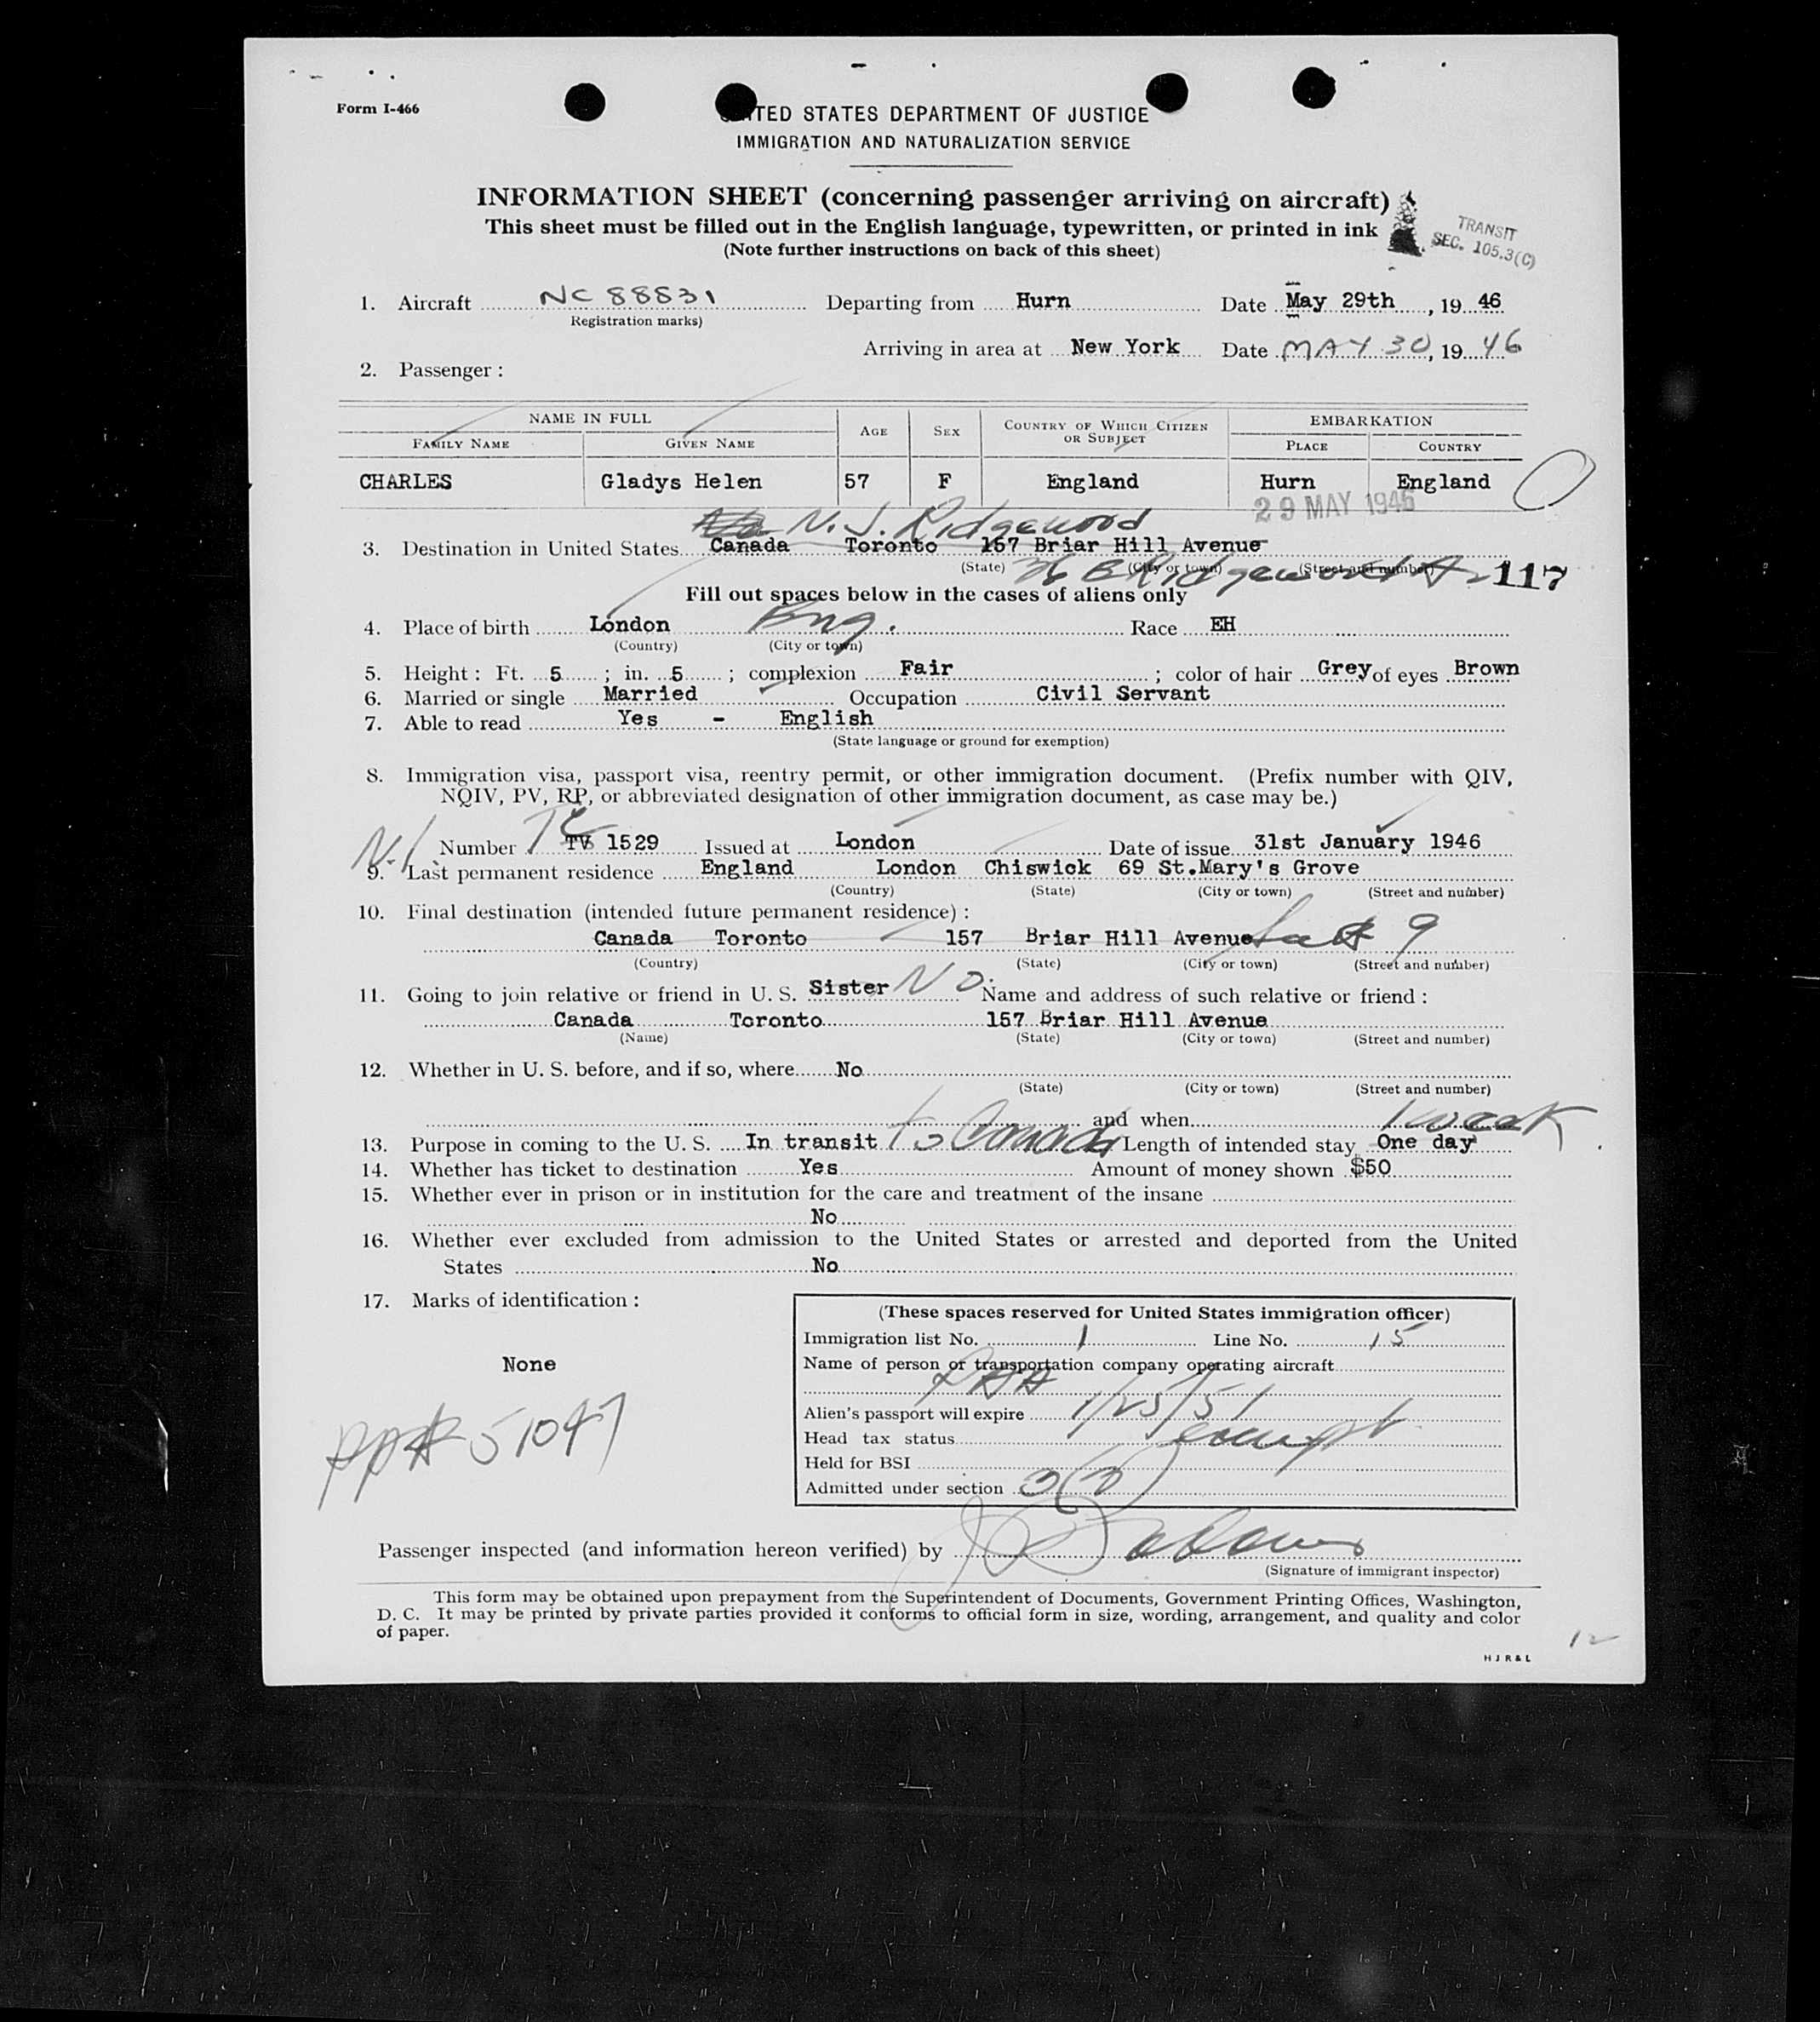 Form I-466
UNITED STATES DEPARTMENT OF JUSTICE
IMMIGRATION AND NATURALIZATION SERVICE
INFORMATION SHEET (concerning passenger arriving on aircraft)
This sheet must be filled out in the English language, typewritten, or printed in ink
(Note further instructions on back of this sheet)
TRANSIT
SEC. 105.3(C)
1. Aircraft NC 88831 Departing from Hurn Date May 29th, 19 46
(Registration marks)
Arriving in area at New York Date MAY 30, 19 46
2. Passenger :
NAME IN FULL AGE SEX COUNTRY OF WHICH CITIZEN OR SUBJECT EMBARKATION
FAMILY NAME GIVEN NAME PLACE COUNTRY
CHARLES Gladys Helen 57 F England Hurn England
29 MAY 1946
N. J. Ridgewood
3. Destination in United States Canada Toronto 157 Briar Hill Avenue
(State) (City or town) (Street and number)
36 E Ridgewood A 117
Fill out spaces below in the cases of aliens only
4. Place of birth London Eng. Race EH
(Country) (City or town)
5. Height : Ft. 5 ; in. 5 ; complexion Fair ; color of hair Grey of eyes Brown
6. Married or single Married Occupation Civil Servant
7. Able to read Yes - English
(State language or ground for exemption)
8. Immigration visa, passport visa, reentry permit, or other immigration document. (Prefix number with QIV,
NQIV, PV, RP, or abbreviated designation of other immigration document, as case may be.)
Number TV 1529 Issued at London Date of issue 31st January 1946
9. Last permanent residence England London Chiswick 69 St.Mary's Grove
(Country) (State) (City or town) (Street and number)
10. Final destination (intended future permanent residence) :
Canada Toronto 157 Briar Hill Avenue 9
(Country) (State) (City or town) (Street and number)
11. Going to join relative or friend in U. S. Sister No. Name and address of such relative or friend :
Canada Toronto 157 Briar Hill Avenue
(Name) (State) (City or town) (Street and number)
12. Whether in U. S. before, and if so, where No
(State) (City or town) (Street and number)
and when
1 week
13. Purpose in coming to the U. S. In transit to Canada Length of intended stay One day
14. Whether has ticket to destination Yes Amount of money shown $50
15. Whether ever in prison or in institution for the care and treatment of the insane
No
16. Whether ever excluded from admission to the United States or arrested and deported from the United
States No
17. Marks of identification :
None
PP# 51047
(These spaces reserved for United States immigration officer)
Immigration list No. 1 Line No. 15
Name of person or transportation company operating aircraft
PAA
Alien's passport will expire 1/25/51
Head tax status exempt
Held for BSI
Admitted under section 3(3)
Passenger inspected (and information hereon verified) by
(Signature of immigrant inspector)
This form may be obtained upon prepayment from the Superintendent of Documents, Government Printing Offices, Washington,
D. C. It may be printed by private parties provided it conforms to official form in size, wording, arrangement, and quality and color
of paper.
12
HJR&L